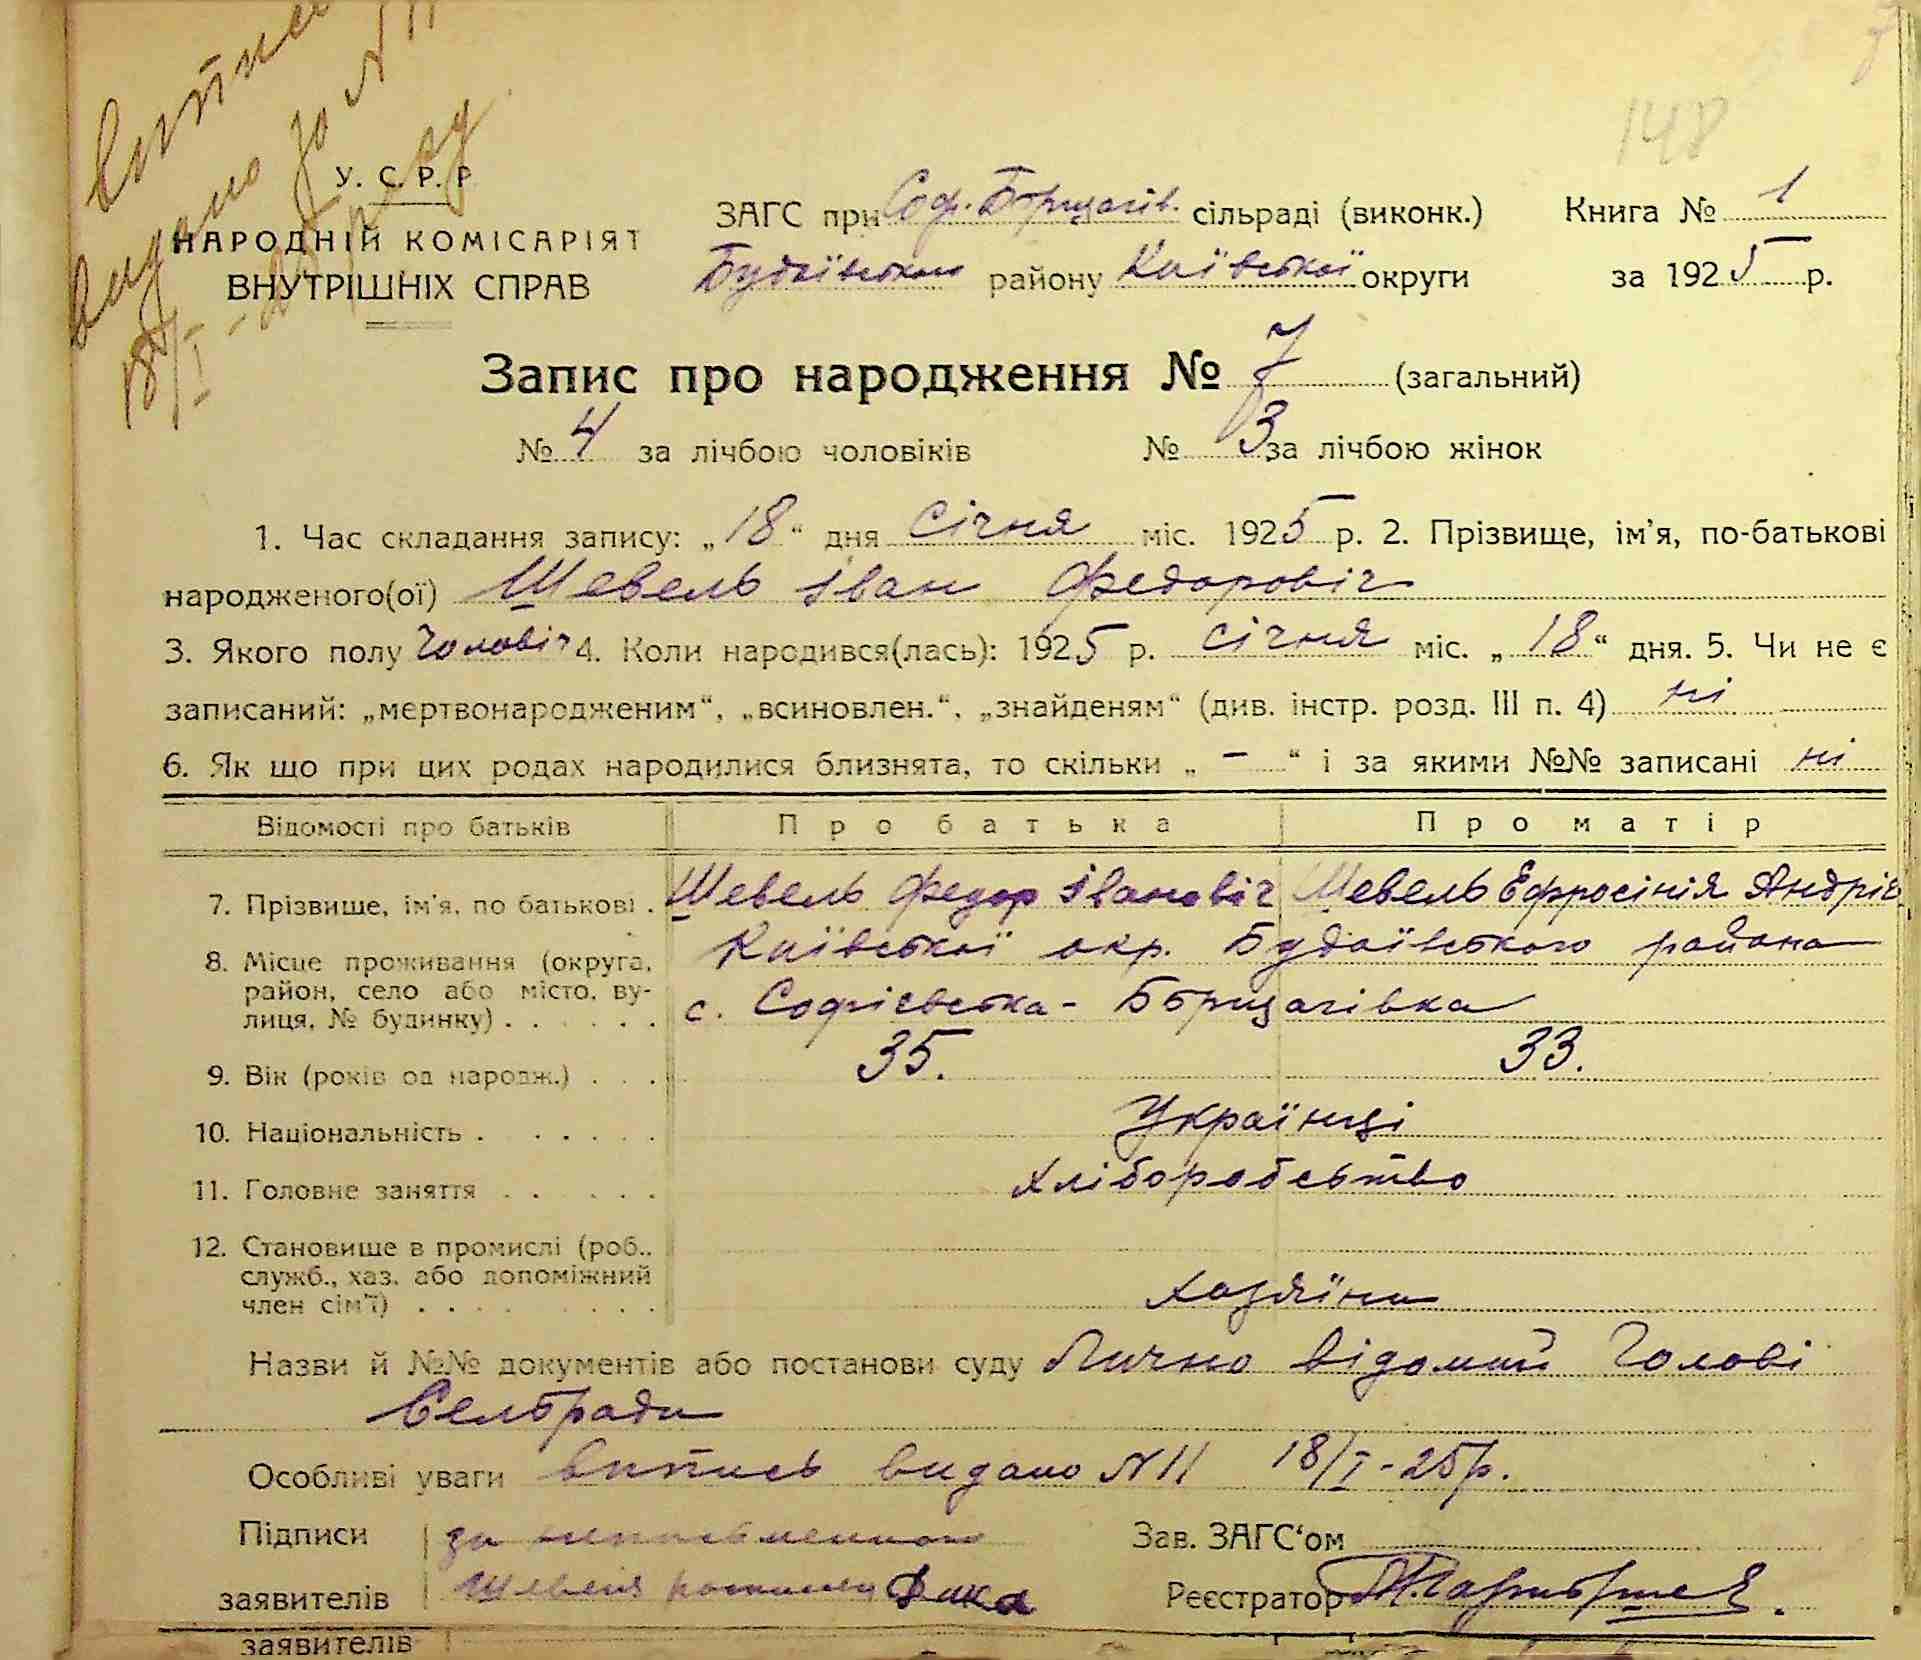 148
видано за №
18/I - 25 р.
У. С. Р. Р.
НАРОДНІЙ КОМІСАРІЯТ
ВНУТРІШНІХ СПРАВ
ЗАГС при Соф.-Борщагів. сільраді (виконк.) Книга № 1
Будаївського району Київської округи за 1925 р.
Запис про народження № 7 (загальний)
№ 4 за лічбою чоловіків № 3 за лічбою жінок
1. Час складання запису: „18“ дня Січня міс. 1925 р. 2. Прізвище, ім'я, по-батькові
народженого(ої) Шевель Іван Федоровіч
3. Якого полу Чоловіч 4. Коли народився(лась): 1925 р. Січня міс. „18“ дня. 5. Чи не є
записаний: „мертвонародженим“, „всиновлен.“, „знайденям“ (див. інстр. розд. III п. 4) ні
6. Як що при цих родах народилися близнята, то скільки „ – “ і за якими №№ записані ні
Відомості про батьків Про батька Про матір
7. Прізвище, ім'я, по батькові . Шевель Федор Івановіч Шевель Ефросінія Андріє
8. Місце проживання (округа, Київської окр. Будаївського района
район, село або місто, ву-
лиця, № будинку) . . . . . . с. Софієвська-Борщагівка
9. Вік (років од народж.) . . . 35. 33.
10. Національність . . . . . . Українці
11. Головне заняття . . . . . Хліборобство
12. Становище в промислі (роб.,
служб., хаз. або допоміжний
член сім'ї) . . . . . . . . Хазяїни
Назви й №№ документів або постанови суду Лично відомий Голові
Сельради
Особливі уваги випись видано N 11 18/I-25 р.
Підписи за Зав. ЗАГС'ом
заявителів Шевеля Дика Реєстратор
заявителів